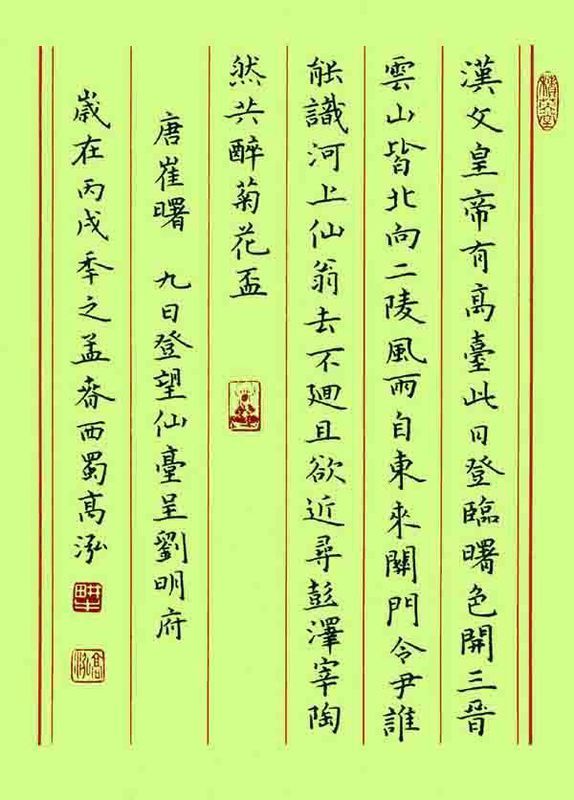 漢文皇帝有高臺此日登臨曙色開三晉
雲山皆北向二陵風雨自東來關門令尹誰
能識河上仙翁去不廻且欲近尋彭澤宰陶
然共醉菊花盃
唐崔曙 九日登望仙臺呈劉明府
歲在丙戌秊之孟春西蜀高泓
高泓